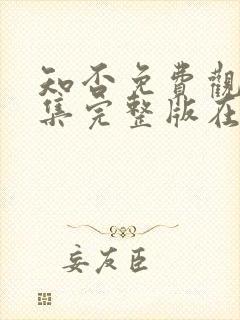 知否免費觀
集完整版在
妄友臣